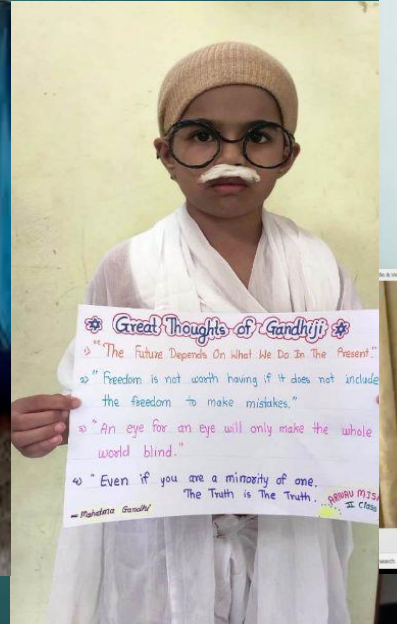 Great Thoughts of Gandhiji
1) "The Future Depends On What We Do In The Present."
2) "Freedom is not worth having if it does not include
the freedom to make mistakes."
3) "An eye for an eye will only make the whole
world blind."
4) "Even if you are a minority of one.
The Truth is The Truth.
- Mahatma Gandhi
II Class